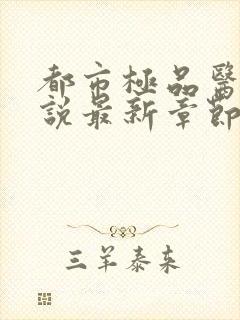 都市極品醫
說最新章節
三羊泰来